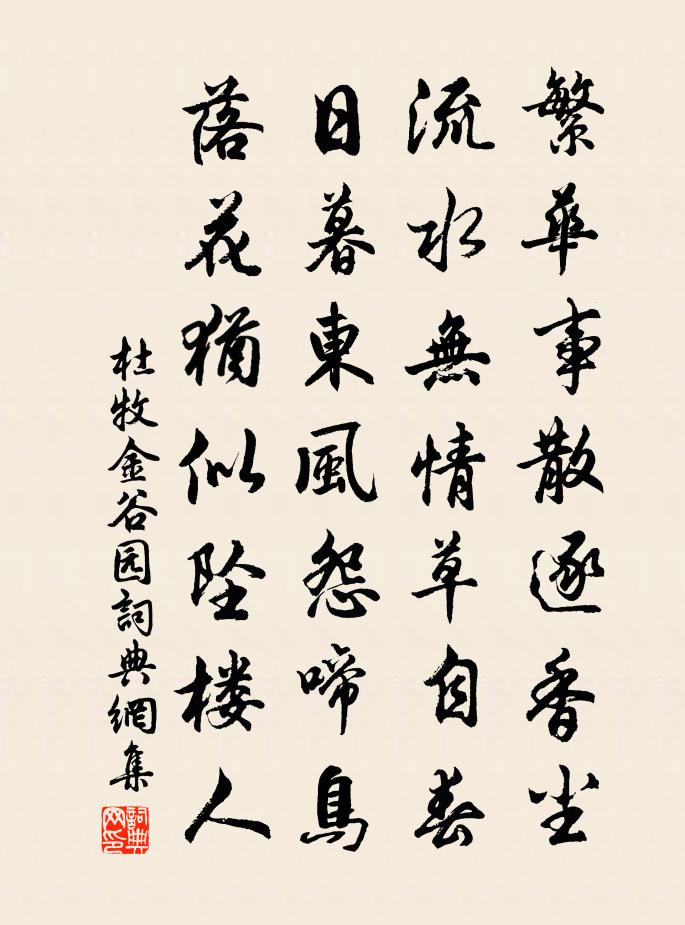 繁華事散逐香尘
流水無情草自春
日暮東風怨啼鳥
落花猶似坠楼人
杜牧金谷园詞典網集
詞典网印